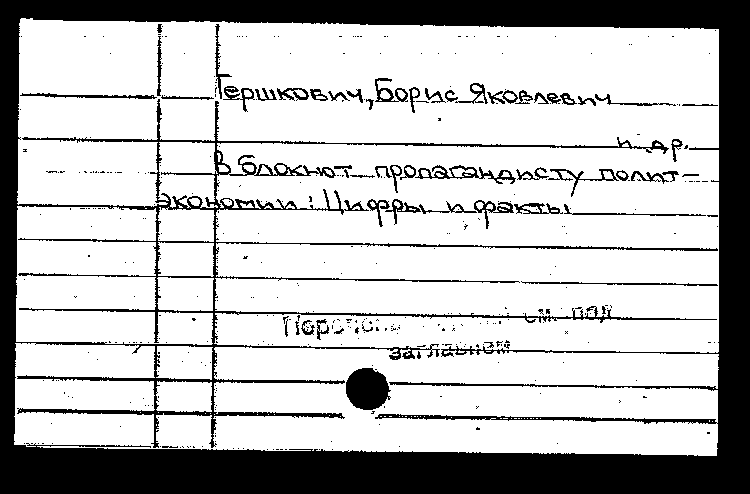 Гершкович, Борис Яковлевич
и др.
В блокнот пропагандисту полит-
экономии: Цифры и факты
см. под
заглавием